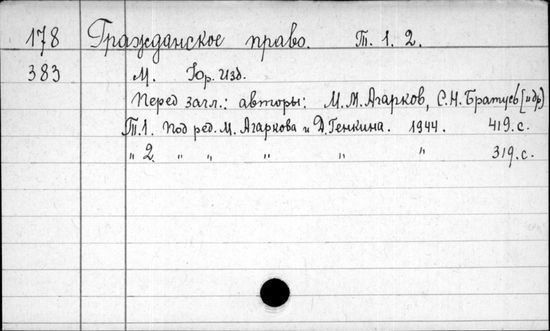 178 Гражданское право. Т. 1. 2.
383 М. Юр. Изд.
Перед загл.: авторы: М.М. Агарков, С.Н. Братусь [и др]
Т.1. Под ред. М. Агаркова и Д. Генкина. 1944. 419.с.
„ 2. „ „ „ „ „ 319.с.